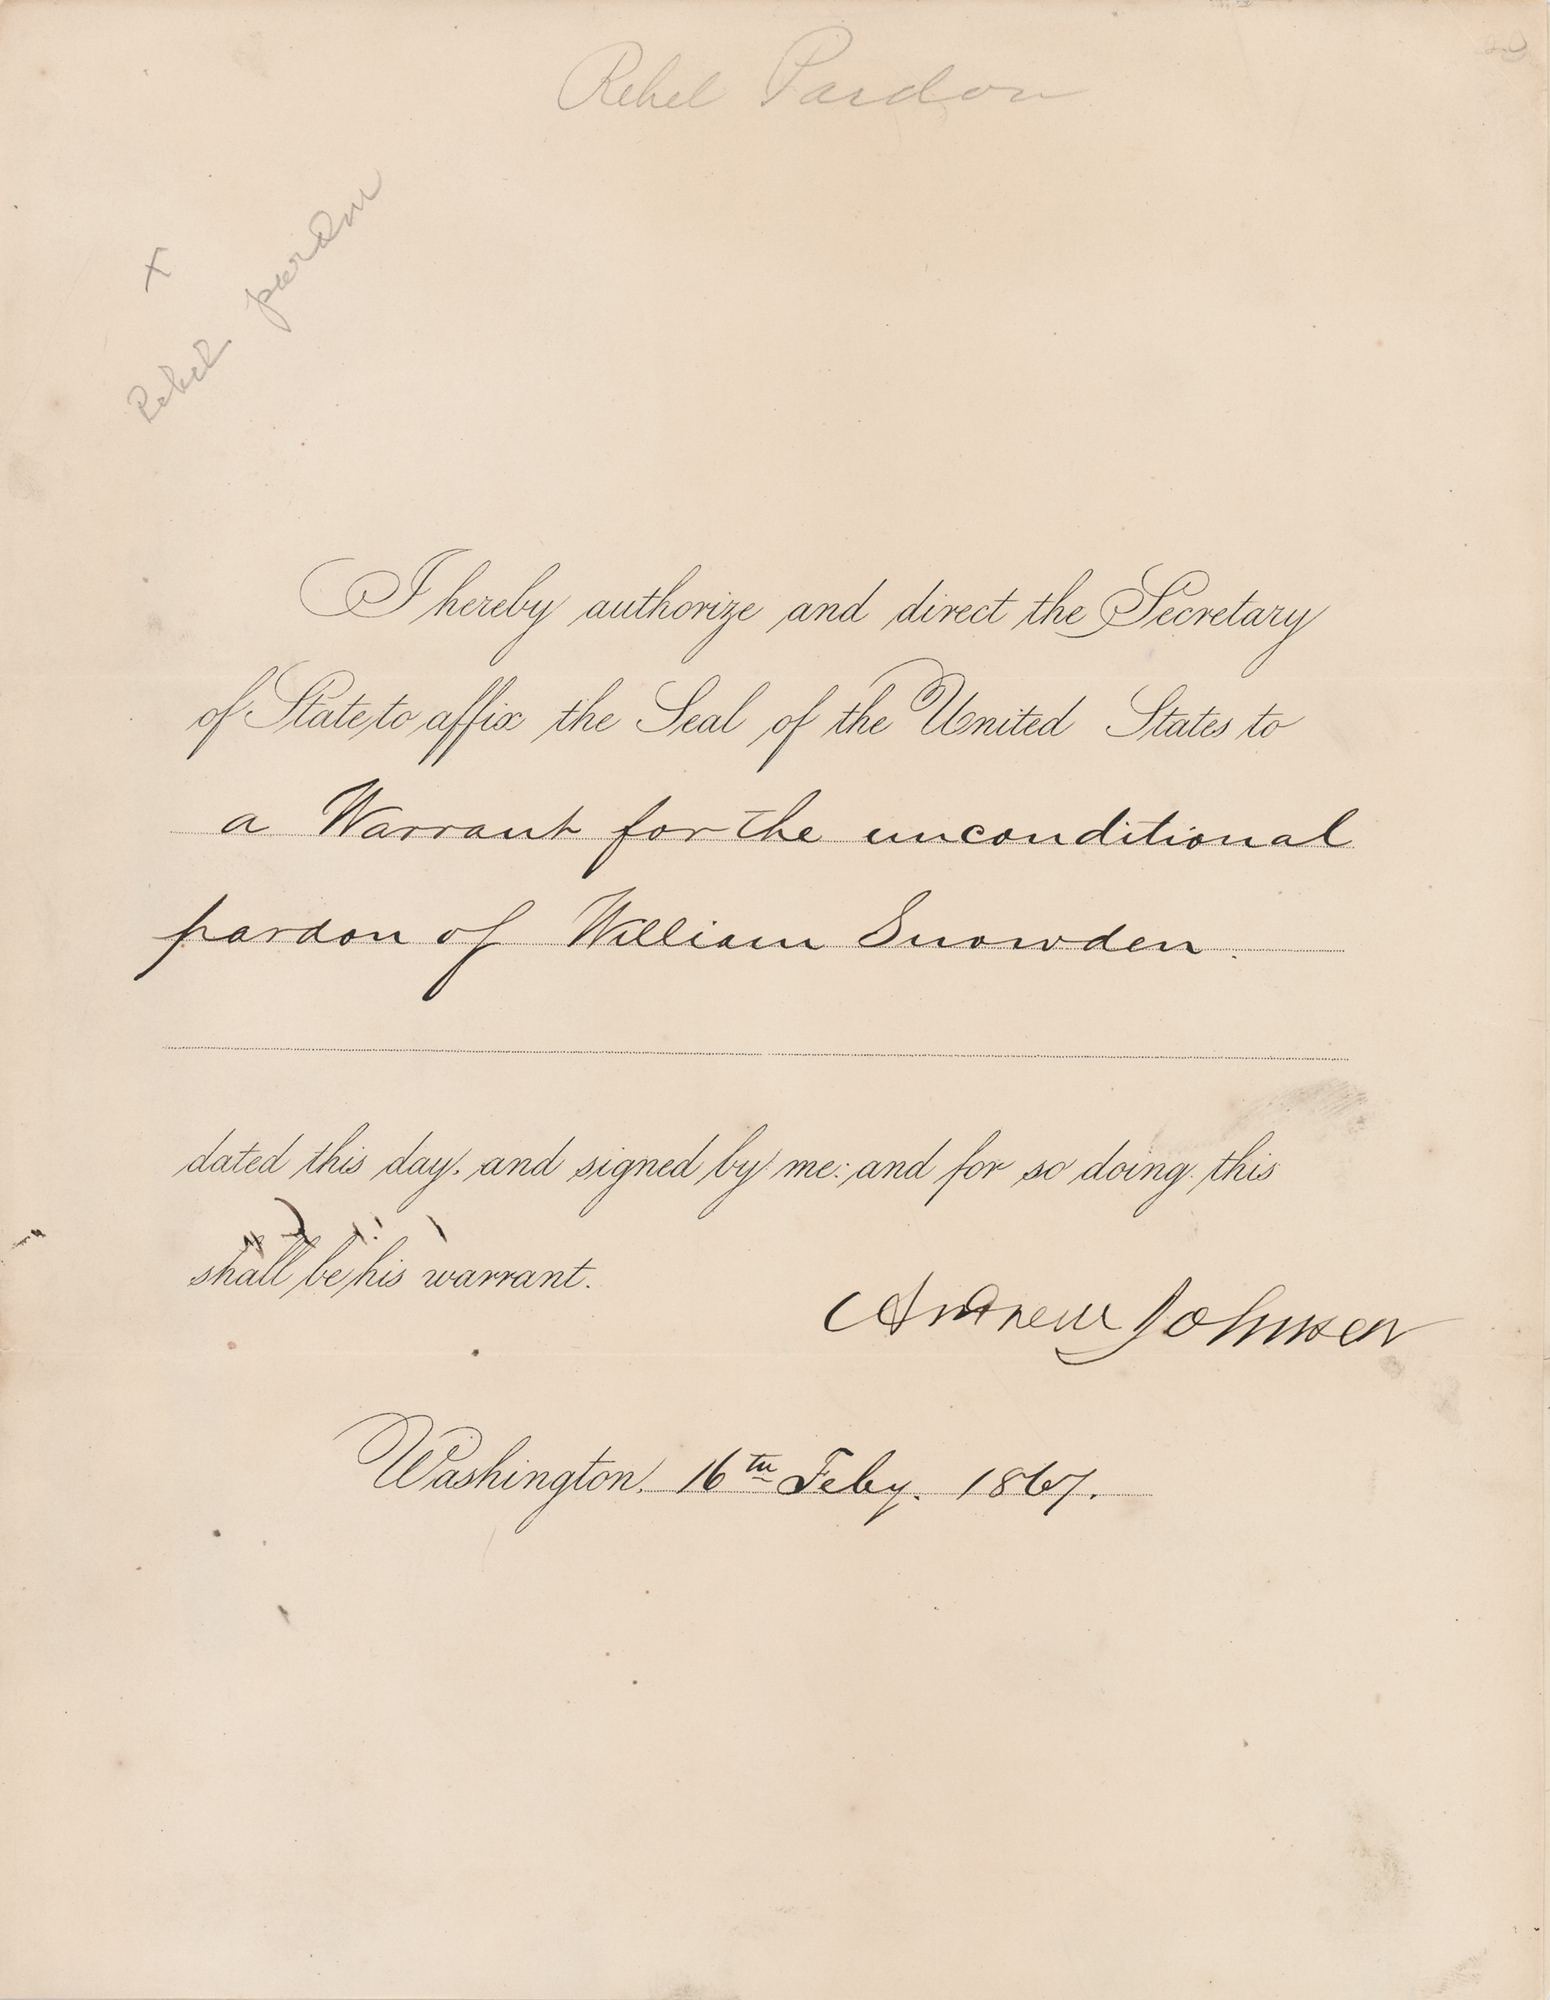 Rebel Pardon
x
Rebel pardon
I hereby authorize and direct the Secretary
of State to affix the Seal of the United States to
a Warrant for the unconditional
pardon of William Snowden.
dated this day, and signed by me: and for so doing this
shall be his warrant.
Andrew Johnson
Washington, 16th Feby. 1867.